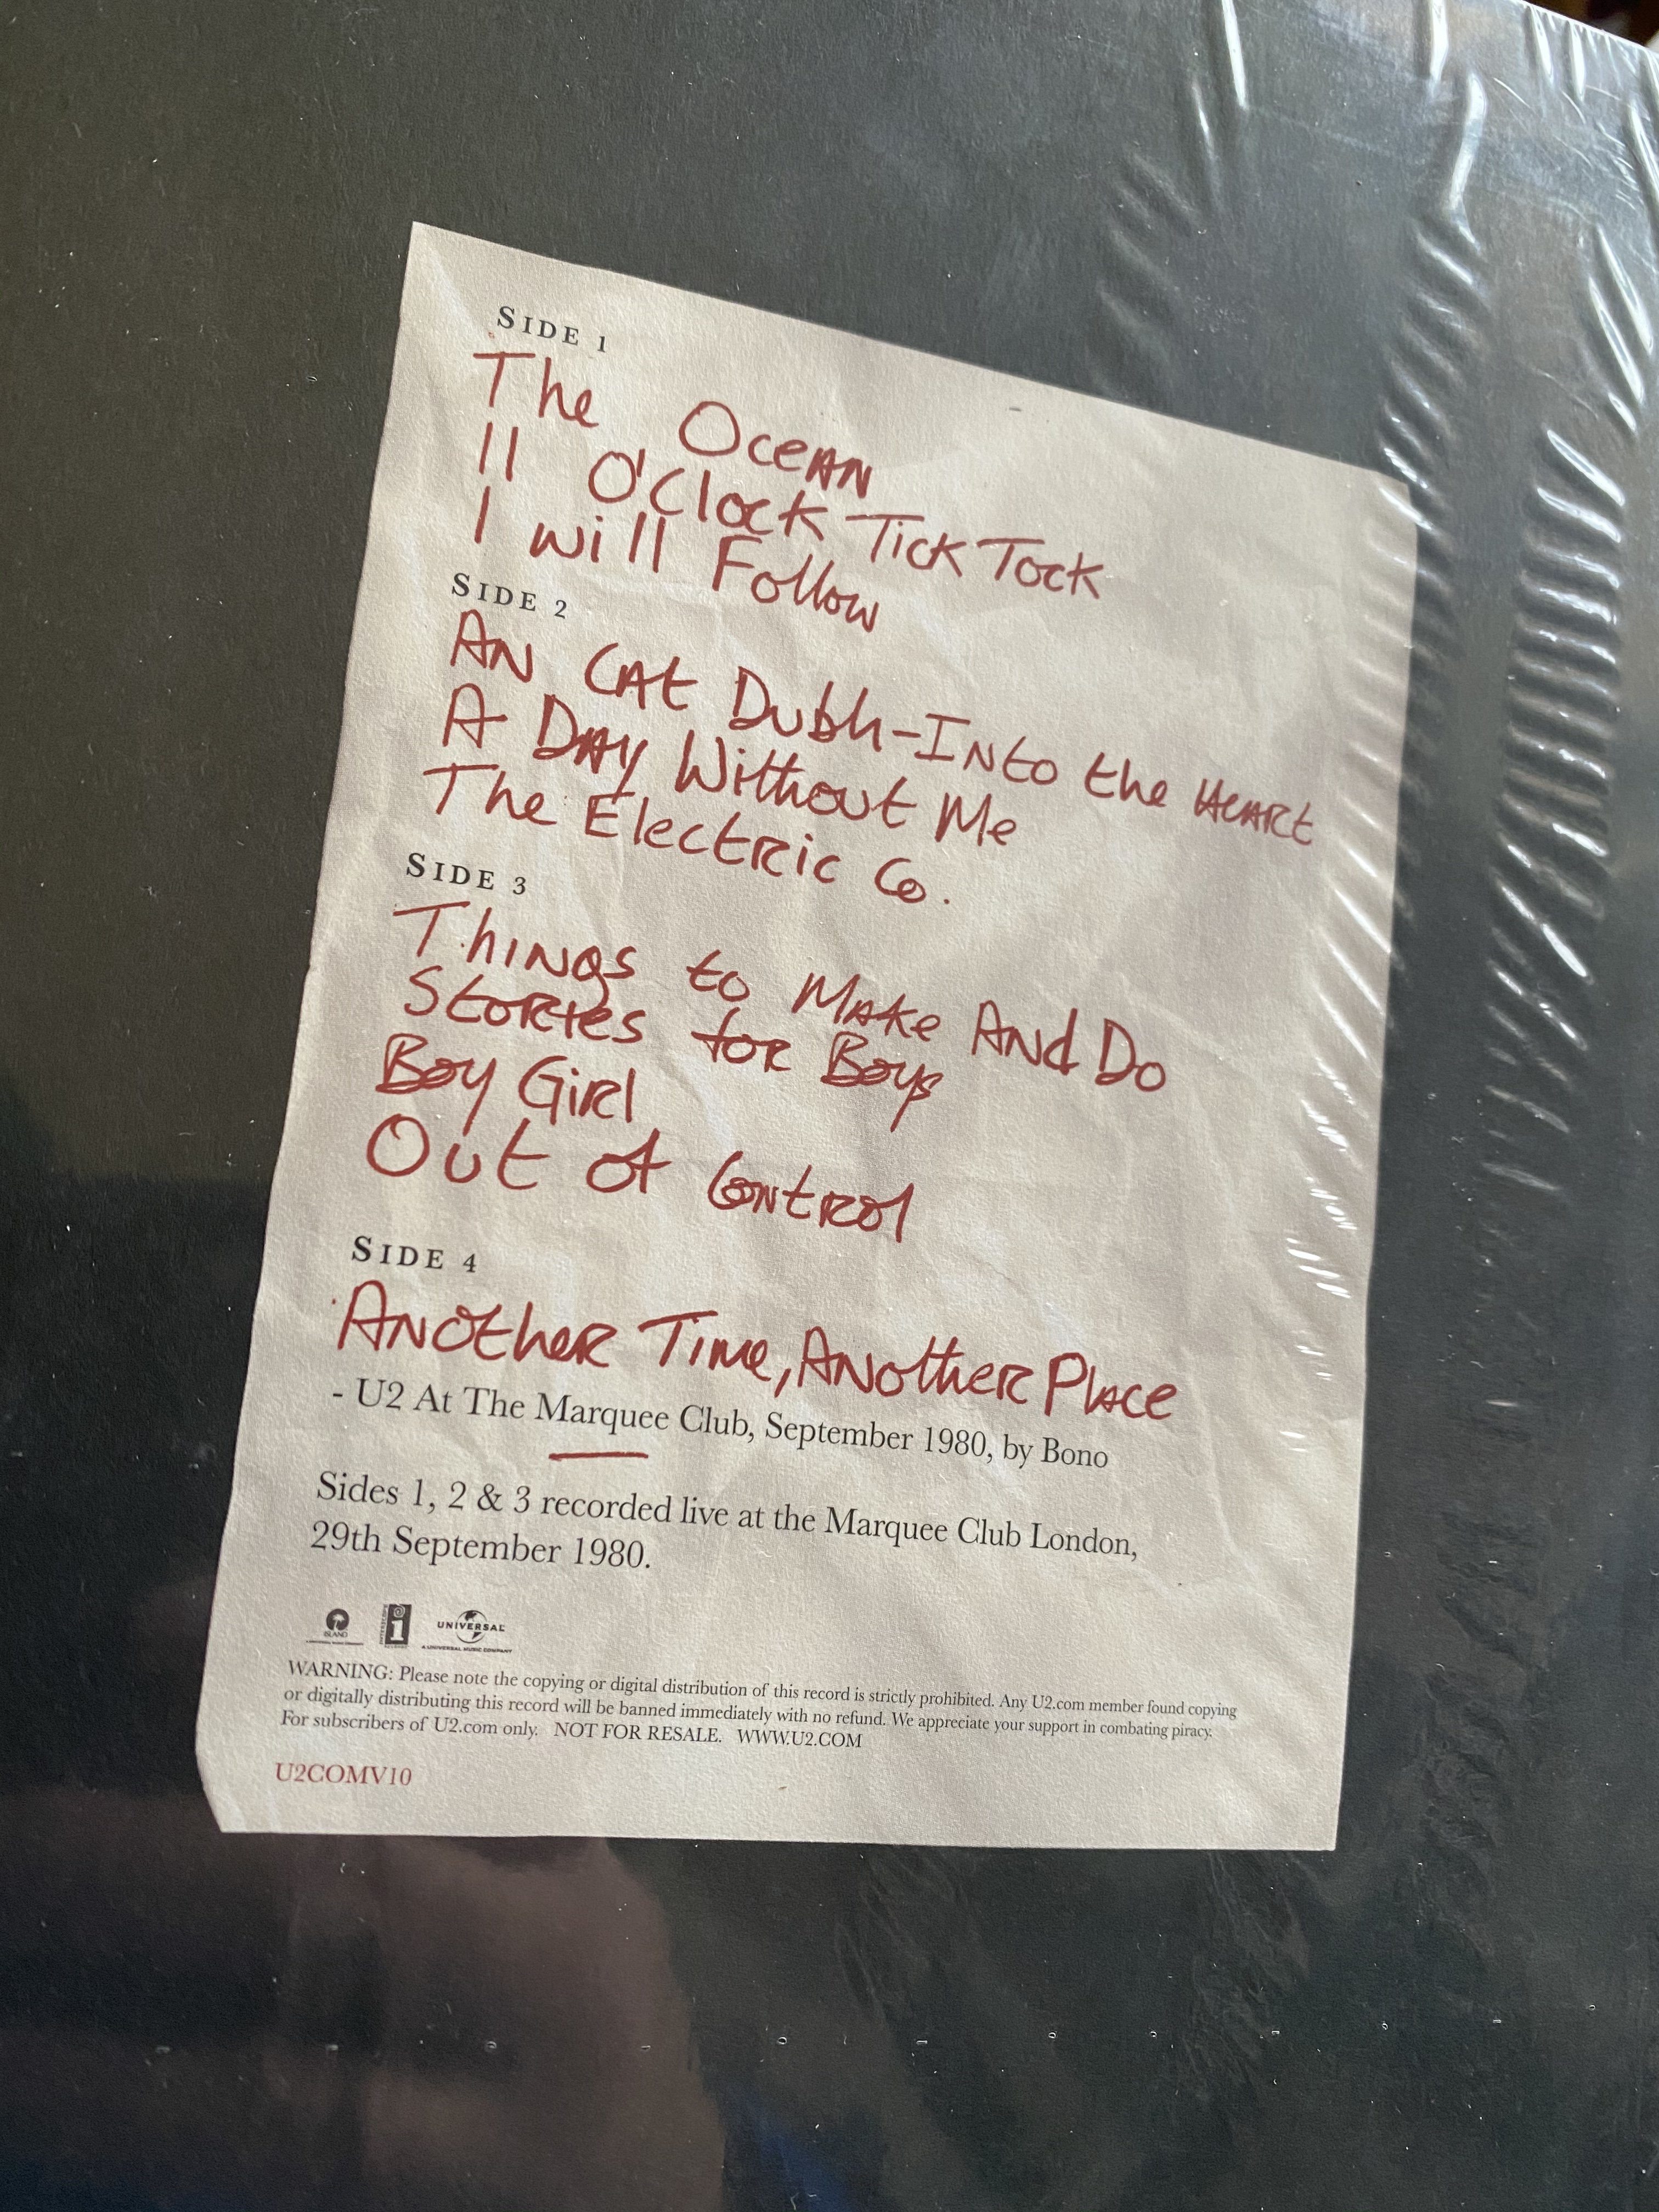 SIDE 1
The Ocean
11 O'Clock Tick Tock
I Will Follow
SIDE 2
An Cat Dubh-Into the Heart
A Day Without Me
The Electric Co.
SIDE 3
Things to Make And Do
Stories for Boys
Boy Girl
Out of Control
SIDE 4
Another Time, Another Place
- U2 At The Marquee Club, September 1980, by Bono
Sides 1, 2 & 3 recorded live at the Marquee Club London,
29th September 1980.
ISLAND
INTERSCOPE
UNIVERSAL
A UNIVERSAL MUSIC COMPANY
WARNING: Please note the copying or digital distribution of this record is strictly prohibited. Any U2.com member found copying
or digitally distributing this record will be banned immediately with no refund. We appreciate your support in combating piracy.
For subscribers of U2.com only. NOT FOR RESALE. WWW.U2.COM
U2COMV10